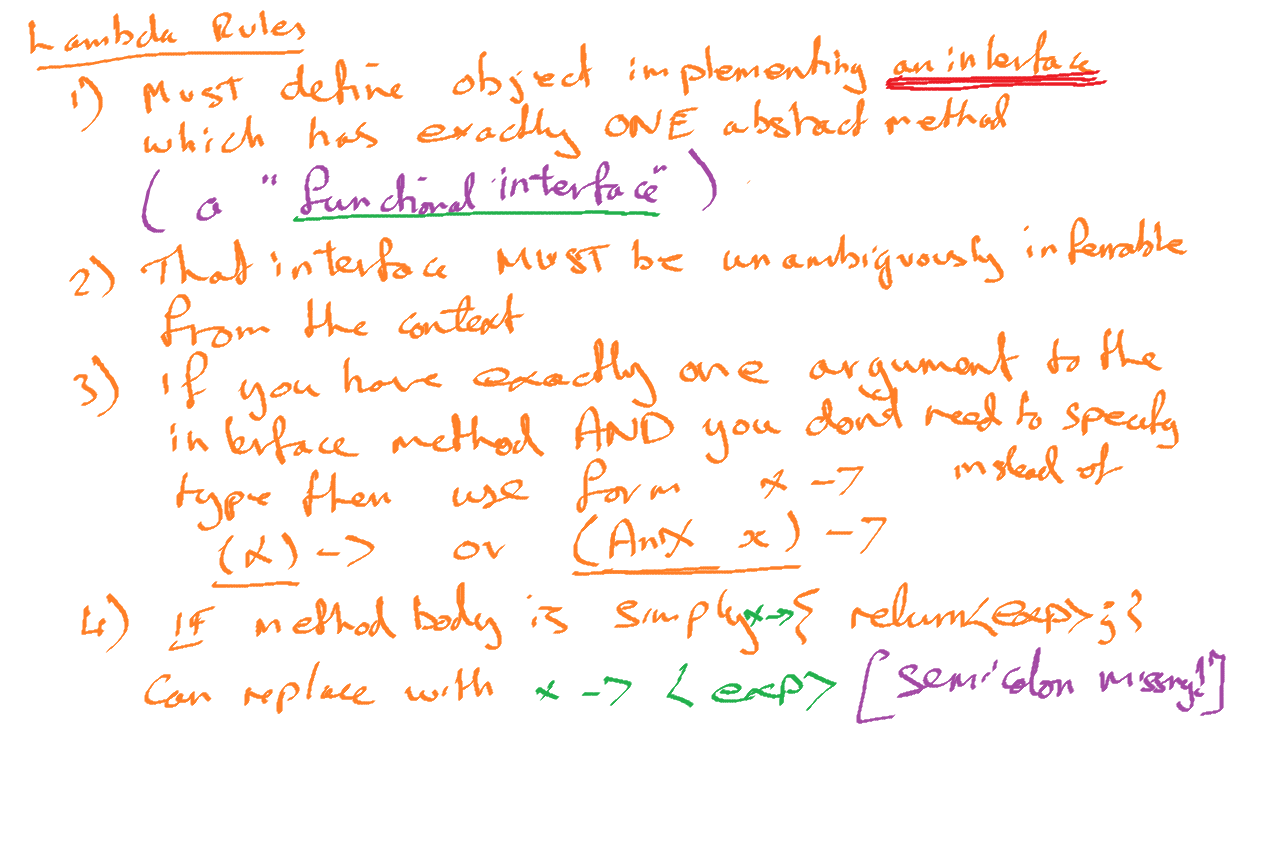 Lambda Rules
1) MUST define object implementing an interface
which has exactly ONE abstract method
( a "functional interface" )
2) That interface MUST be unambiguously inferrable
from the context
3) if you have exactly one argument to the
interface method AND you don't need to specify
type then use form x -> instead of
(x) -> or (AnX x) ->
4) IF method body is simply x -> { return <exp> ; }
Can replace with x -> <exp> [semicolon missing!]